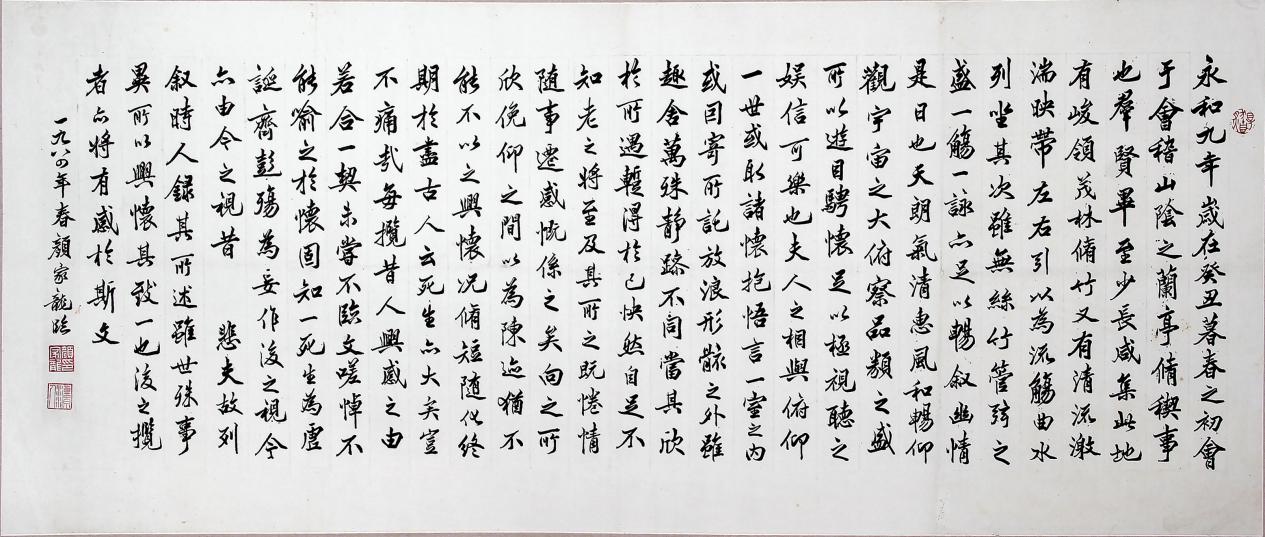 永和九年歲在癸丑暮春之初會
于會稽山陰之蘭亭脩稧事
也羣賢畢至少長咸集此地
有峻領茂林脩竹又有清流激
湍映帶左右引以為流觴曲水
列坐其次雖無絲竹管弦之
盛一觴一詠亦足以暢敘幽情
是日也天朗氣清惠風和暢仰
觀宇宙之大俯察品類之盛
所以遊目騁懷足以極視聽之
娛信可樂也夫人之相與俯仰
一世或取諸懷抱悟言一室之內
或因寄所託放浪形骸之外雖
趣舍萬殊靜躁不同當其欣
於所遇暫得於己怏然自足不
知老之將至及其所之既惓情
隨事遷感慨係之矣向之所
欣俛仰之間以為陳迹猶不
能不以之興懷況脩短隨化終
期於盡古人云死生亦大矣豈
不痛哉每攬昔人興感之由
若合一契未嘗不臨文嗟悼不
能喻之於懷固知一死生為虛
誕齊彭殤為妄作後之視今
亦由今之視昔 悲夫故列
敘時人錄其所述雖世殊事
異所以興懷其致一也後之攬
者亦將有感於斯文
一九八四年春顏家龍臨